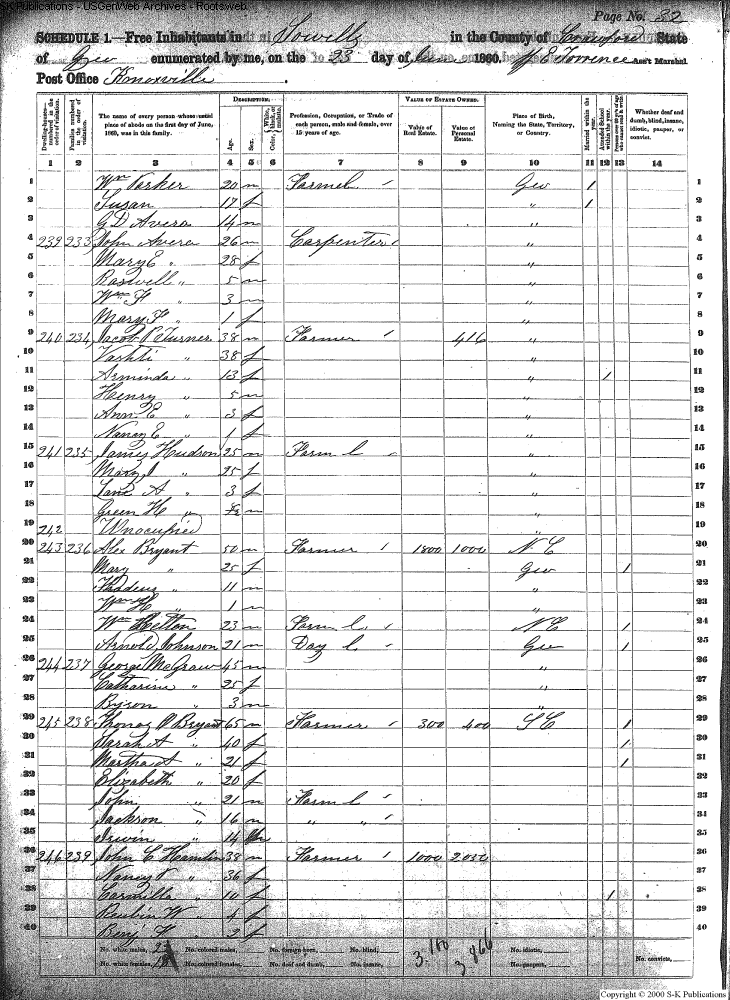 S-K Publications - USGenWeb Archives - Rootsweb
Page No. 32
SCHEDULE 1.—Free Inhabitants in Howells in the County of Crawford State
of Geo enumerated by me, on the 23 day of June 1860. E Torrence Ass't Marshal
Post Office Knoxville.
DESCRIPTION. VALUE OF ESTATE OWNED.
Dwelling-houses—numbered in the order of visitation. Families numbered in the order of visitation. The name of every person whose usual place of abode on the first day of June, 1860, was in this family. Age. Sex. Color, White, black, or mulatto. Profession, Occupation, or Trade of each person, male and female, over 15 years of age. Value of Real Estate. Value of Personal Estate. Place of Birth, Naming the State, Territory, or Country. Married within the year. Attended School within the year. Whether deaf and dumb, blind, insane, idiotic, pauper, or convict.
1 2 3 4 5 6 7 8 9 10 11 12 13 14
1 Wm Parker 20 m Farm L Geo 1 1
2 Susan 17 f " 1 2
3 G D Avera 14 m " 3
4 239 233 John Avera 26 m Carpenter / " 4
5 Mary E " 28 f " 5
6 Raswell " 5 m " 6
7 Wm F " 3 m " 7
8 Mary F " 1 f " 8
9 240 234 Jacob P Turner 38 m Farmer / 416 " 9
10 Vashti " 38 f " 10
11 Arminda " 13 f " / 11
12 Henry " 5 m " 12
13 Ann E " 3 f " 13
14 Nancy E " 1 f " 14
15 241 235 James Hudson 25 m Farm L / " 15
16 Mary J " 25 f " 16
17 Jane A " 3 f " 17
18 Green H " m " 18
19 242 Unocupied " 19
20 243 236 Alex Bryant 50 m Farmer / 1800 1000 N C 20
21 Mary " 25 f Geo / 21
22 Thadeus " 11 m " 22
23 Wm H " 1 m " 23
24 Wm Helton 23 m Farm L / N C / 24
25 Arnold Johnson 21 m Day L / Geo / 25
26 244 237 George McGraw 45 m " 26
27 Catharine " 25 f " 27
28 Byron " 3 m " 28
29 245 238 Thomas P Bryant 65 m Farmer / 300 400 S C / 29
30 Sarah A " 40 f / 30
31 Martha A " 21 f / 31
32 Elizabeth " 20 f 32
33 John " 21 m Farm L / 33
34 Jackson " 16 m " " / 34
35 Irwin " 14 m 35
36 246 239 John C Hamlin 38 m Farmer / 1000 2050 36
37 Nancy " 36 f 37
38 Carmilla " 10 f / 38
39 Reubin W " 4 f 39
40 Benj 2 f 40
No. white males, No. colored males, No. foreign born, No. blind, 3.100 3866 No. idiotic,
No. white females, No. colored females, No. deaf and dumb, No. insane, No. paupers, No. convicts,
Copyright © 2000 S-K Publications